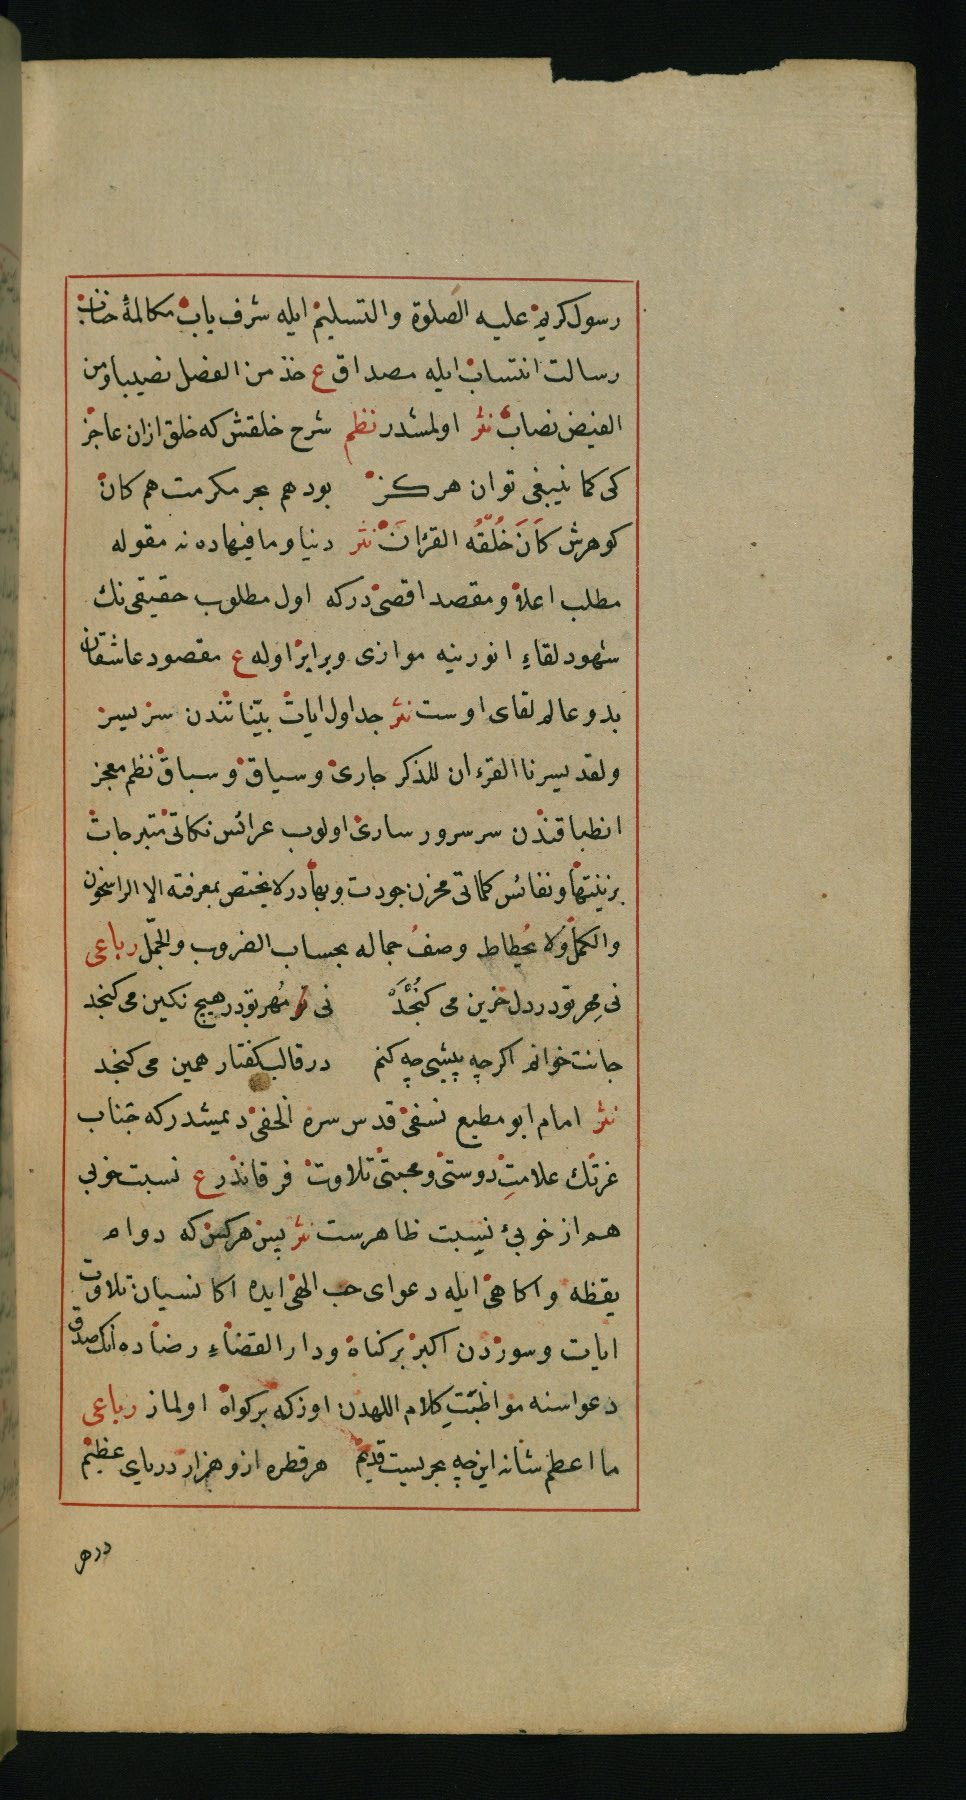 رسول كريم عليه الصلوة والتسليم ايله شرف ياب مكالمۀ جناب
رسالت انتساب ايله مصداق ع خذ من الفضل نصيبا ومن
الفيض نصاب نثر اولمشدر نظم شرح خلقش كه خلق ازان عاجز
كى كما ينبغى توان هركز بود هم بحر مكرمت هم كان
كوهرش كَانَ خُلُقُه القرانَ نثر دنيا وما فيهاده نه مقوله
مطلب اعلا ومقصد اقصى دركه اول مطلوب حقيقى نك
شهود لقاءِ انورينه موازى وبرابر اوله ع مقصود عاشقان
بدو عالم لقاى اوست نثر جداول ايات بيّناتندن سر بسر
ولقد يسرنا القرءان للذكر جارى وسياق وسباق نظم معجز
انطباقندن سرسرور سارى اولوب عرائس نكاتى متبرجات
بزينتها ونفائس كلماتى مخزن جودت وبها در لا يختص بمعرفته الا الراسخون
والكمل ولا يحيطاط وصفُ جماله بحساب الضروب والجمّل رباعى
نى مِهر تو در دل حزين مى كنجد نى مُهر تو در هيچ نكين مى كنجد
جانت خوانم اكرچه بيشى چه كنم در قالب كفتار همين مى كنجد
نثر امام ابو مطيع نسفى قدس سره الحفى ديمشدركه جناب
عزتك علامتِ دوستى ومحبتى تلاوت فرقاندر ع نسبت خوبى
هم از خوبئ نسبت ظاهرست نثر پس هركس كه دوام
يقظه واكاهى ايله دعواى حب الهى ايده اكا نسيان تلاوت
ايات وسوردن اكبر بر كناه ودار القضاءِ رضاده انك صدق
دعواسنه مواظبتِ كلام اللهدن اوزكه بر كواه اولماز رباعى
ما اعظم شانه اين چه بحريست قديم هر قطره ازو هزار درياى عظيم
درهر